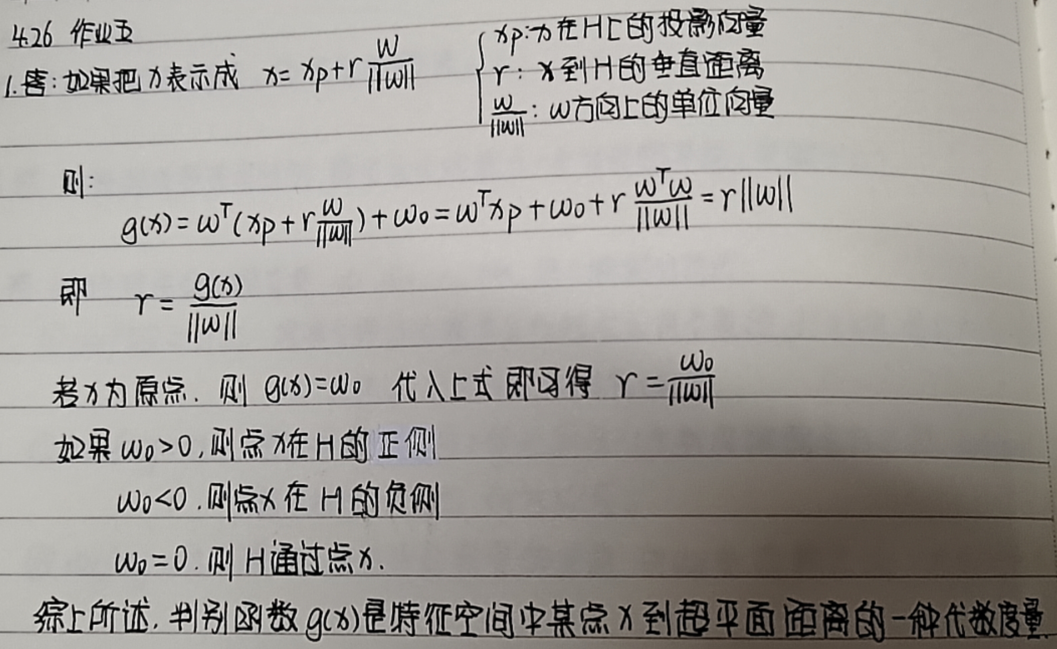 4.26 作业五
1.答:如果把x表示成 x=xp+r w/||w|| { xp:x在H上的投影向量
r: x到H的垂直距离
w/||w||: w方向上的单位向量
则:
g(x)=wᵀ(xp+r w/||w||)+w₀=wᵀxp+w₀+r wᵀw/||w||=r||w||
即 r=g(x)/||w||
若x为原点. 则 g(x)=w₀ 代入上式即可得 r=w₀/||w||
如果w₀>0,则点x在H的正侧
w₀<0.则点x在H的负侧
w₀=0.则H通过点x.
综上所述.判别函数g(x)是特征空间中某点x到超平面距离的一种代数度量.